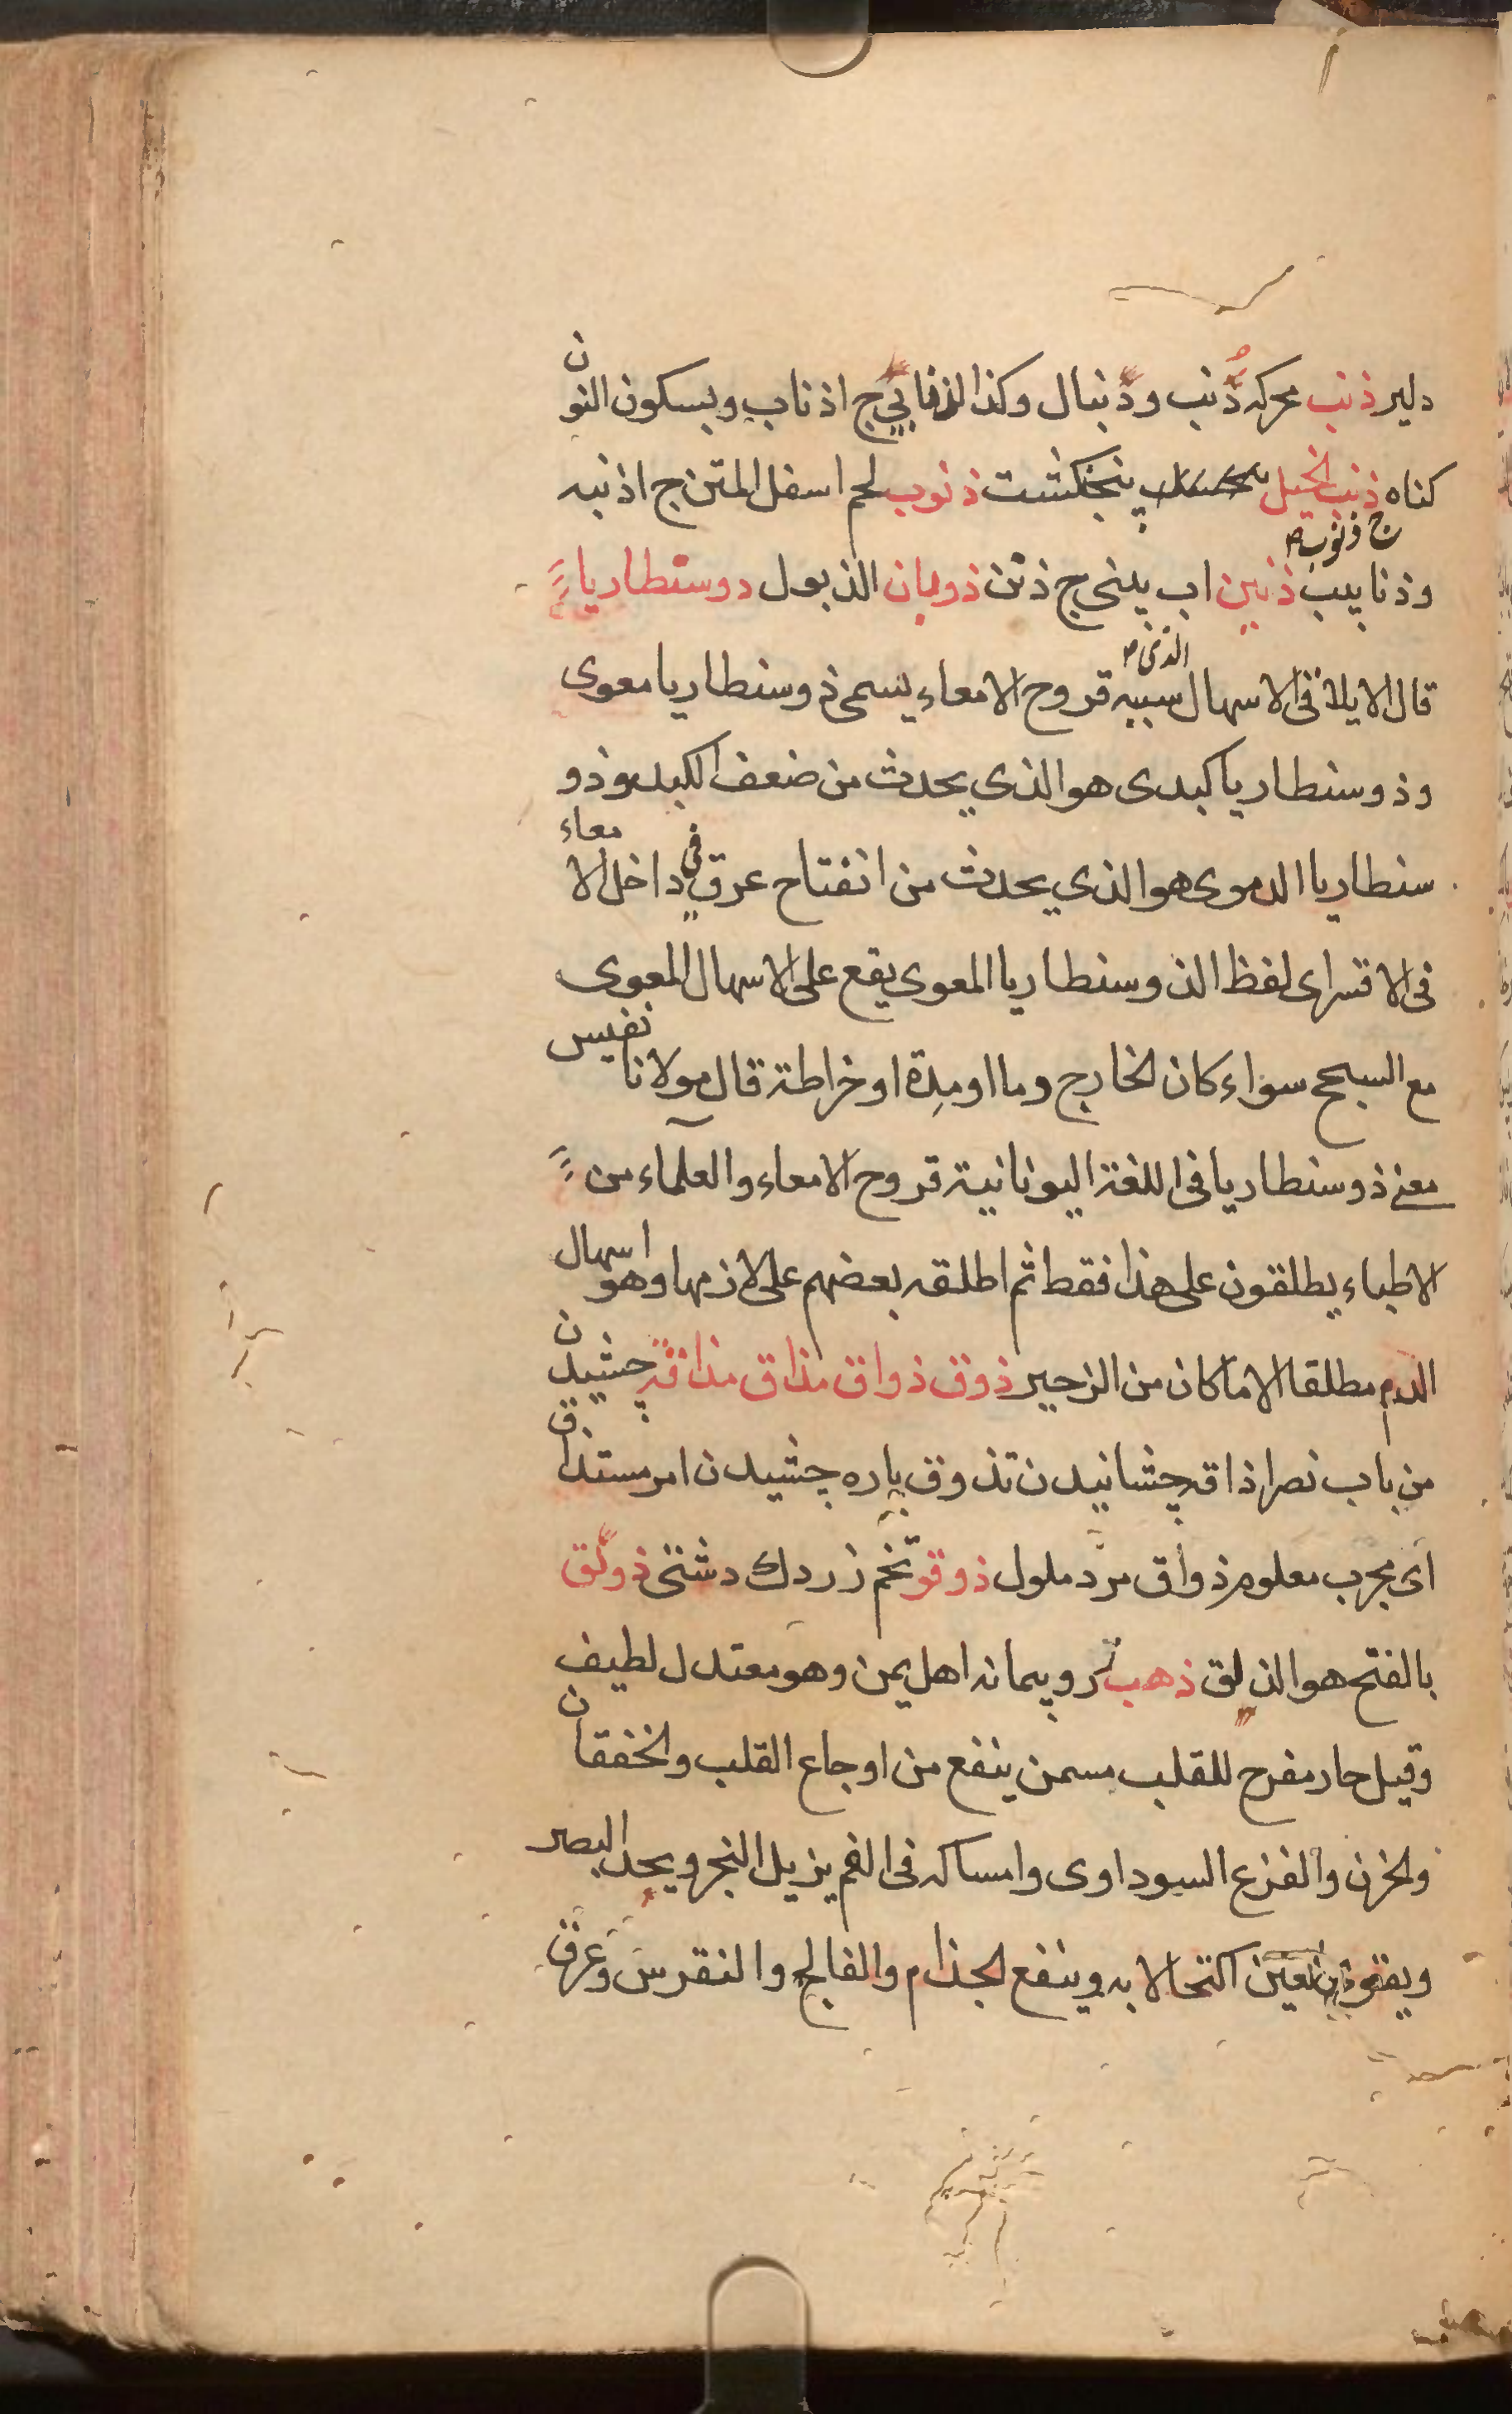 دلير ذنب محركه دُنب و دُنبال وكذا الذنابي ج اذناب وبسكون النون
كناه ذنب الخيل پنجنكشت ذنوب لحم اسفل المتن ج اذنبه
وذنايب ج ذنوب ذنين اب بينى ج ذنن ذوبان الذبول دوسنطاريا
قال الايلاقى الاسهال الذى سببه قروح الامعاء يسمى ذوسنطاريا معوى
وذوسنطاريا كبدى هو الذي يحدث من ضعف الكبد وذو
سنطاريا الدموى هو الذي يحدث من انفتاح عرق في داخل الامعاء
فى الاقسراى لفظ الذوسنطاريا المعوى يقع على الاسهال المعوى
مع السحج سواء كان الخارج دما او مِدة او خراطة قال مولانا نفيس
معنى ذوسنطاريا فى اللغة اليونانية قروح الامعاء والعلماء من
الاطباء يطلقون على هذا فقط ثم اطلقه بعضهم على لازمها وهو اسهال
الدم مطلقا الا ما كان من الزحير ذوق ذواق مذاق مذاقة چشيدن
من باب نصر اذاقه چشانيدن تذوق پاره چشيدن امر مستذاق
اى مجرب معلوم ذواق مرد ملول ذوقو تخم زردك دشتى ذولق
بالفتح هو الذلق ذهب زر وپيمانه اهل يمن وهو معتدل لطيف
وقيل حار مفرح للقلب مسمن ينفع من اوجاع القلب والخفقان
والحزن والفزع السوداوى وامساكه فى الفم يزيل البخر ويحد البصر
ويقوى العين اكتحالا به وينفع الجذام والفالج والنقرس وعرق